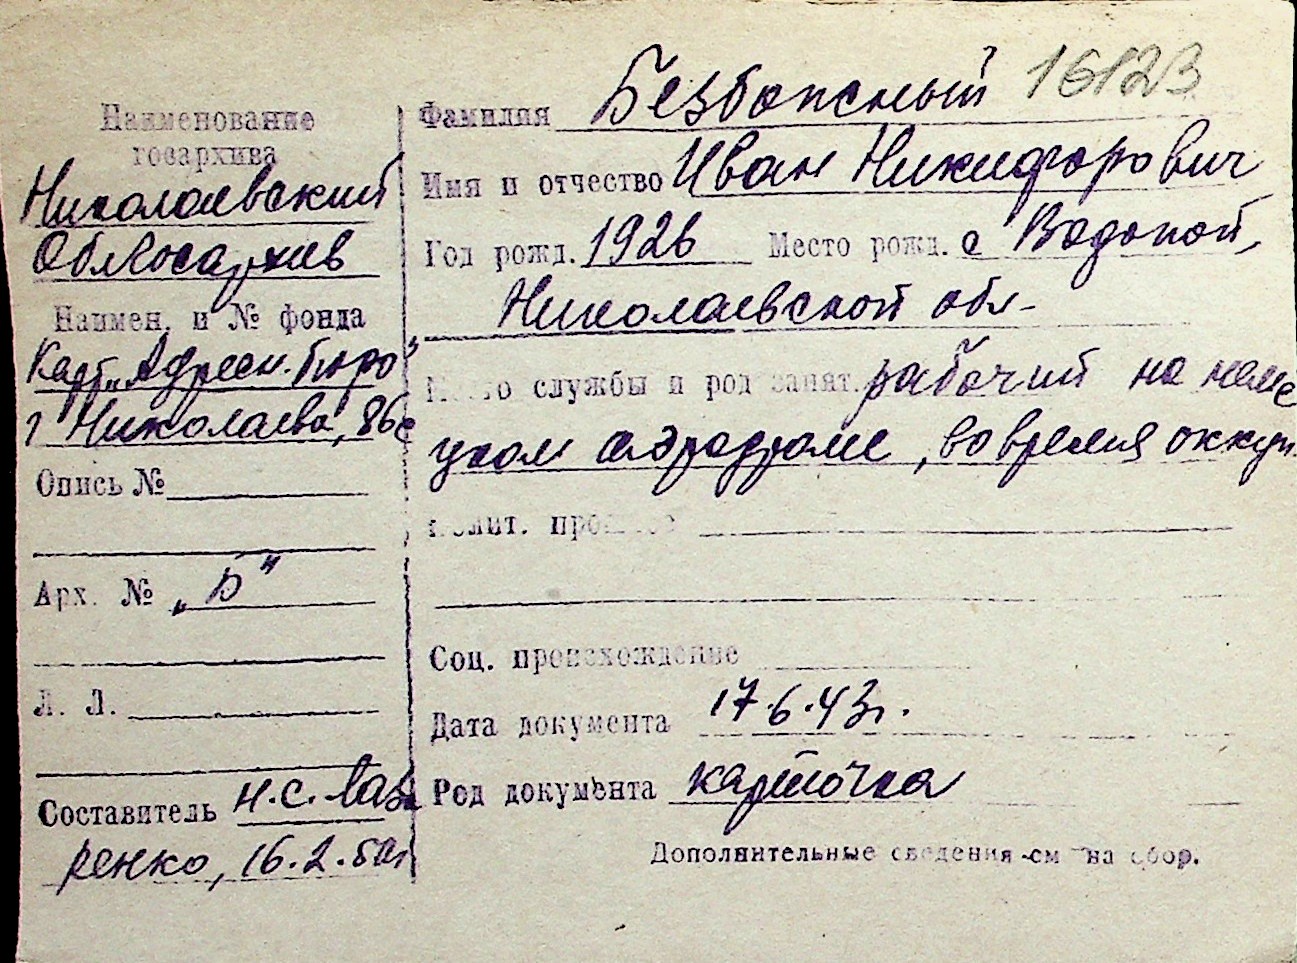 16123
Наименование
госархива
Николаевский
Облгосархив
Наимен. и № фонда
Карт. „Адресн. бюро”
г Николаева, 86с
Опись №
Арх. № „Б”
Л. Л.
Составитель Н.С. Лаз
ренко, 16.2.50г
Фамилия Безбожный
Имя и отчество Иван Никифорович
Год рожд. 1926 Место рожд. с Водопой,
Николаевской обл-
Место службы и род занят. рабочий на неме
цком аэродроме, во время оккуп.
Полит. прошлое
Соц. происхождение
Дата документа 17.6.43г.
Род документа карточка
Дополнительные сведения-см на обор.